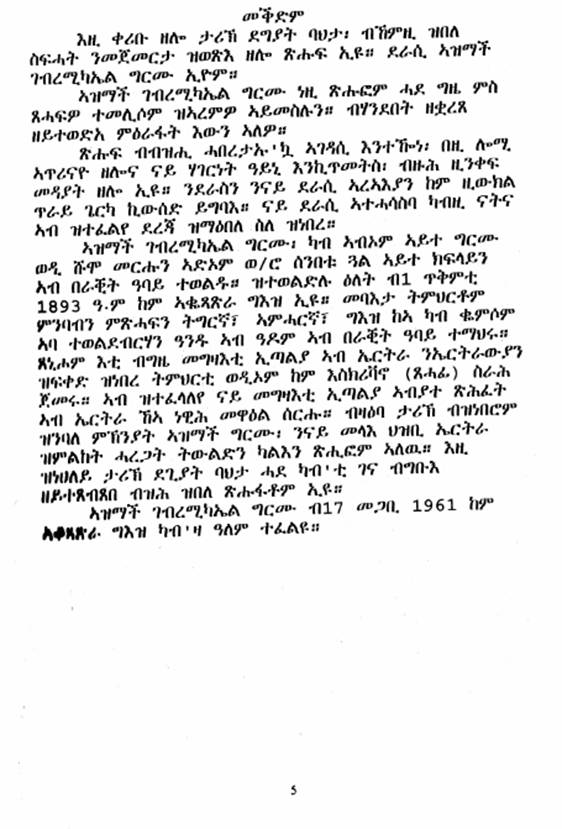 መቕድም
እዚ ቀሪቡ ዘሎ ታሪኽ ደግያት ባህታ፡ ብኸምዚ ዝበለ
ስፍሓት ንመጀመርታ ዝወጽእ ዘሎ ጽሑፍ ኢዩ። ደራሲ ኣዝማች
ገብረሚካኤል ግርሙ ኢዮም።
ኣዝማች ገብረሚካኤል ግርሙ ነዚ ጽሑፎም ሓደ ግዜ ምስ
ጸሓፍዎ ተመሊሶም ዝኣረምዎ ኣይመስሉን። ብሃንደበት ዘቋረጸ
ዘይተወድአ ምዕራፋት እውን ኣለዎ።
ጽሑፍ ብብዝሒ ሓበሬታኡ'ኳ ኣገዳሲ እንተዀነ፡ በዚ ሎሚ
ኣጥሪናዮ ዘሎና ናይ ሃገርነት ዓይኒ እንኪጥመትስ፡ ብዙሕ ዚንቀፍ
መዳያት ዘሎ ኢዩ። ንደራስን ንናይ ደራሲ ኣረኣእያን ከም ዚውክል
ጥራይ ጌርካ ኪውሰድ ይግባእ። ናይ ደራሲ ኣተሓሳስባ ካብዚ ናትና
ኣብ ዝተፈልየ ደረጃ ዝማዕበለ ስለ ዝነበረ።
ኣዝማች ገብረሚካኤል ግርሙ፡ ካብ ኣብኦም ኣይተ ግርሙ
ወዲ ሹሞ መርሑን ኣድኦም ወ/ሮ ሰንበቱ ጓል ኣይተ ክፍላይን
ኣብ በራቒት ዓባይ ተወልዱ። ዝተወልድሉ ዕለት ብ1 ጥቅምቲ
1893 ዓ.ም ከም ኣቈጻጽራ ግእዝ ኢዩ። መባእታ ትምህርቶም
ምንባብን ምጽሓፍን ትግርኛ፣ ኣምሓርኛ፣ ግእዝ ከኣ ካብ ቈምሶም
ኣባ ተወልደብርሃን ዓንዱ ኣብ ዓዶም ኣብ በራቒት ዓባይ ተማህሩ።
ጸኒሖም እቲ ብግዜ መግዛእቲ ኢጣልያ ኣብ ኤርትራ ንኤርትራውያን
ዝፍቀድ ዝነበረ ትምህርቲ ወዲኦም ከም እስክሪቫኖ (ጸሓፊ) ስራሕ
ጀመሩ። ኣብ ዝተፈላለየ ናይ መግዛእቲ ኢጣልያ ኣብያተ ጽሕፈት
ኣብ ኤርትራ ኸኣ ነዊሕ መዋዕል ሰርሑ። ብዛዕባ ታሪኽ ብዝነበሮም
ዝንባለ ምኽንያት ኣዝማች ግርሙ፡ ንናይ መላእ ህዝቢ ኤርትራ
ዝምልከት ሓረጋት ትውልድን ካልእን ጽሒፎም ኣለዉ። እዚ
ዝነህለይ ታሪኽ ደጊያት ባህታ ሓደ ካብ'ቲ ገና ብግቡእ
ዘይተጸብጸበ ብዝሕ ዝበለ ጽሑፋቶም ኢዩ።
ኣዝማች ገብረሚካኤል ግርሙ ብ17 መጋቢ 1961 ከም
ኣቆጻጽራ ግእዝ ካብ'ዛ ዓለም ተፈልዩ።
5